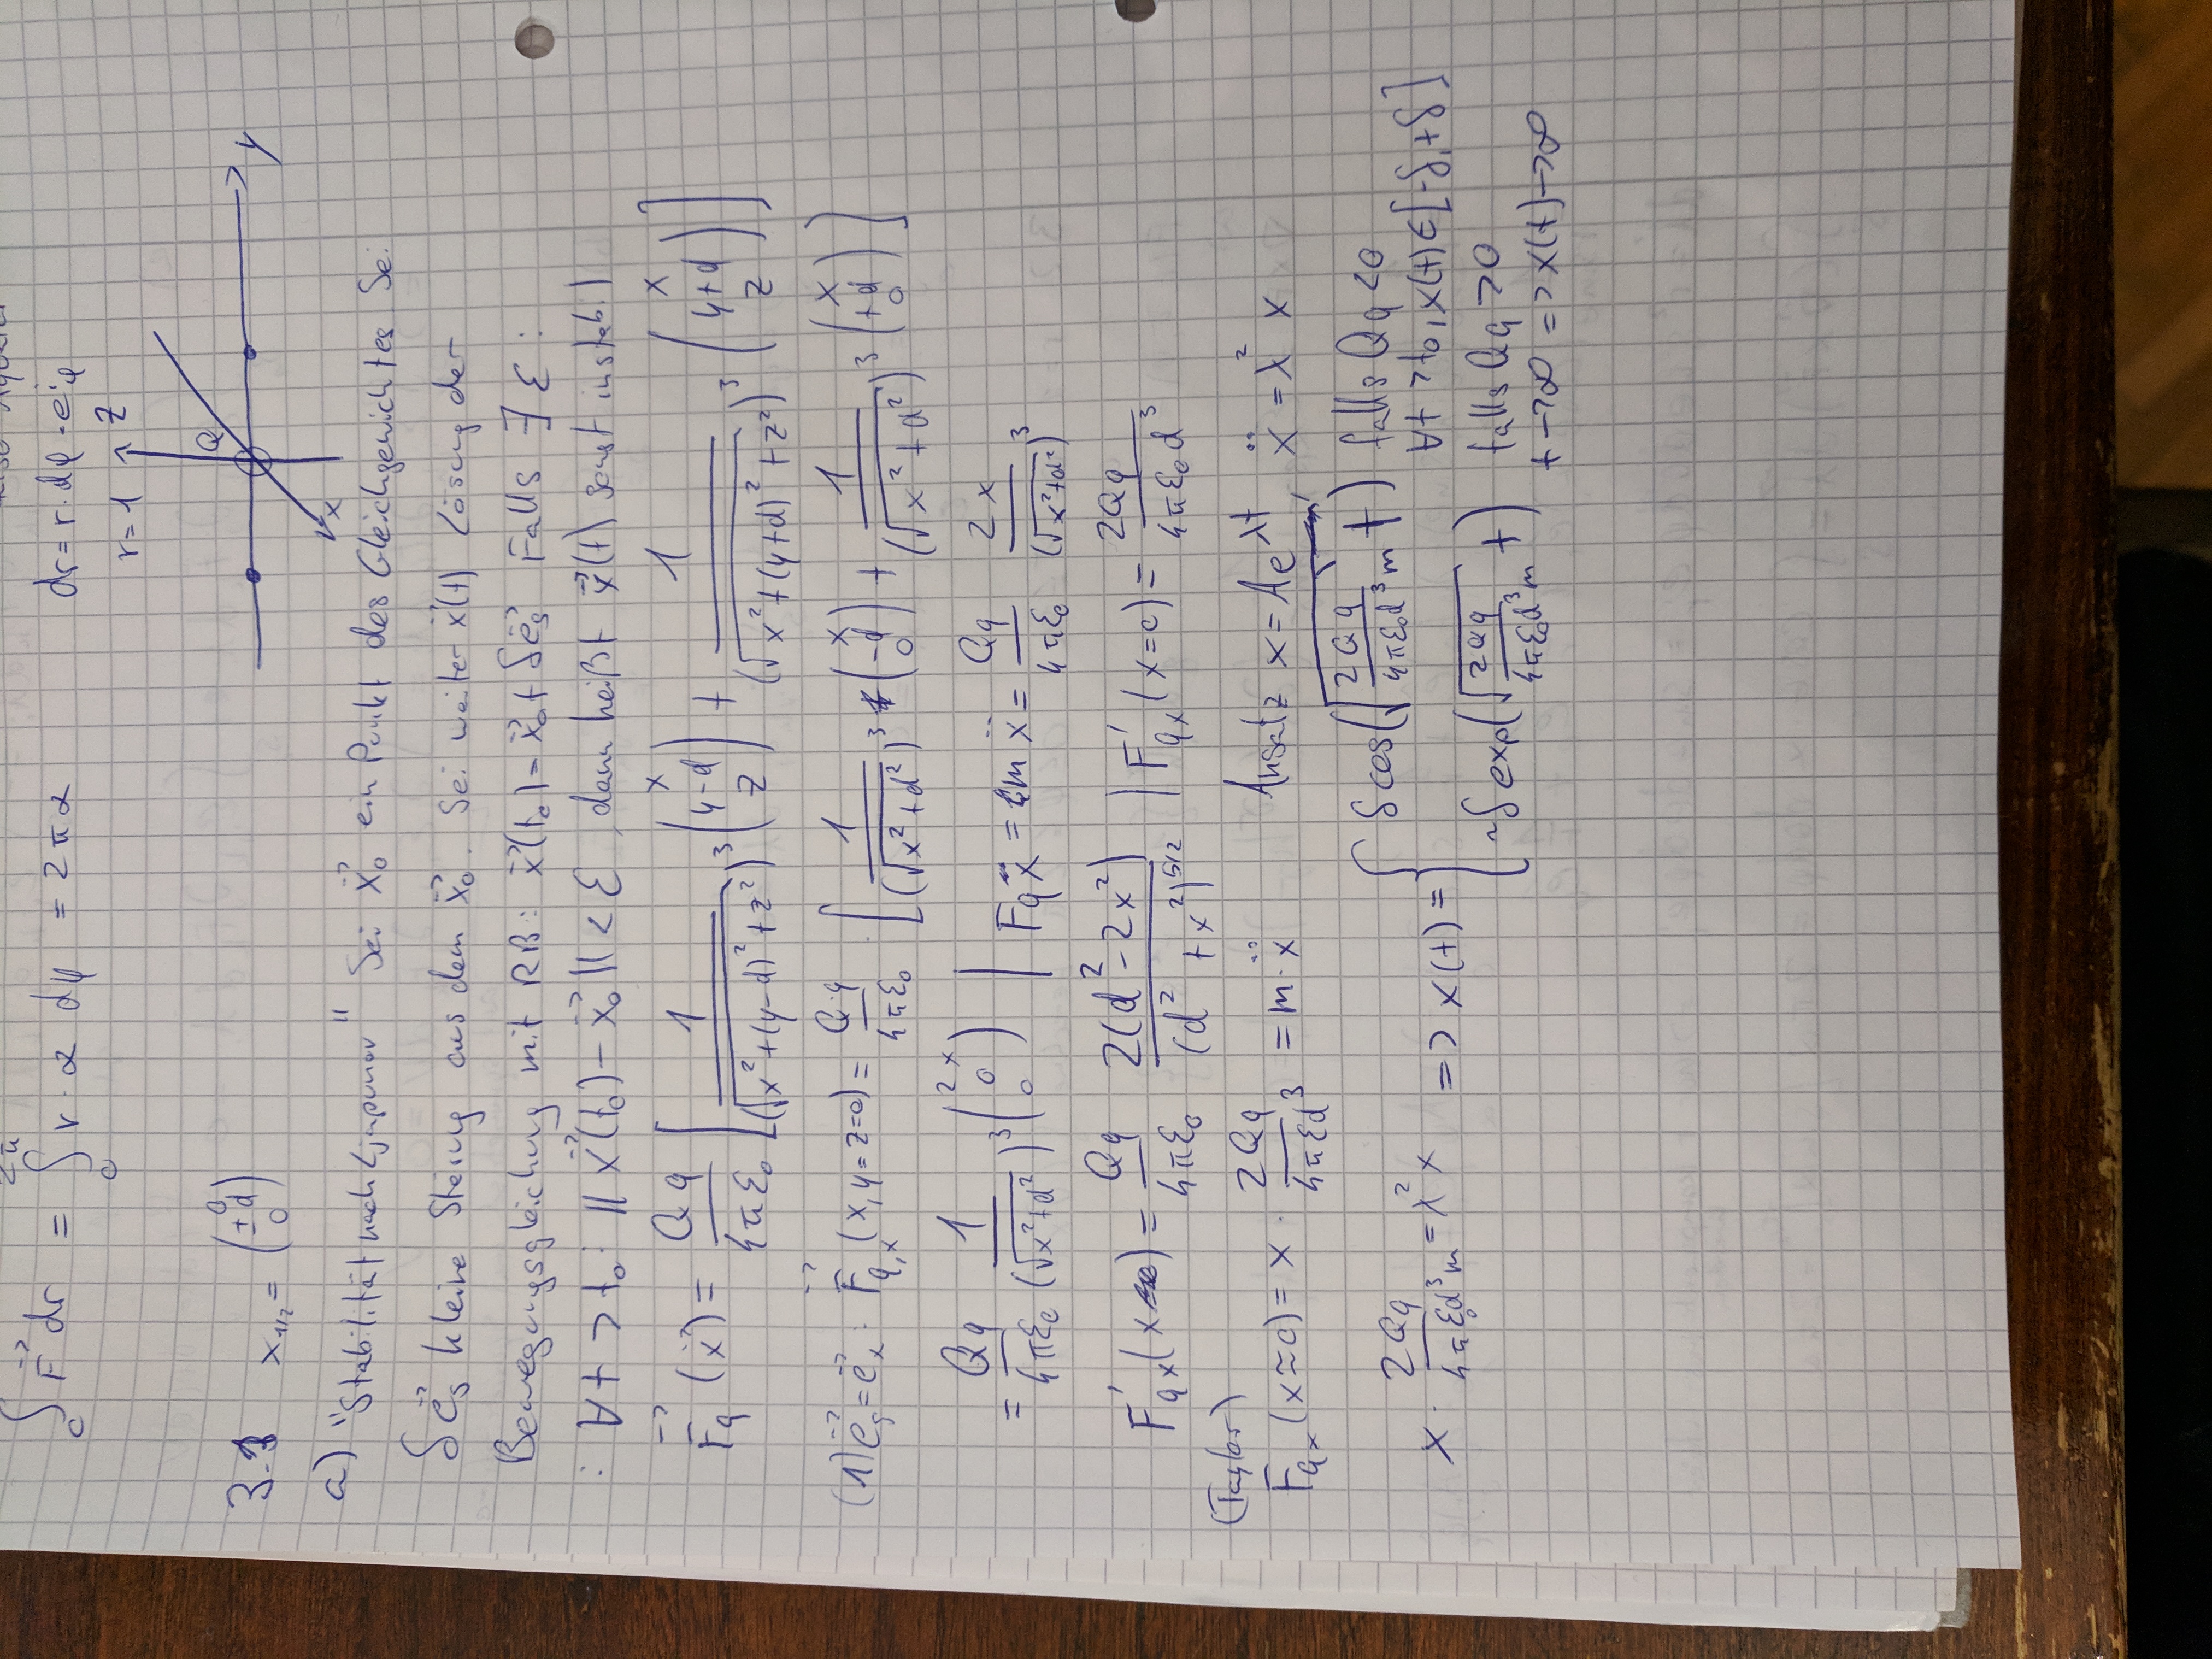 ∫_C F⃗ dr = ∫_0^{2π} r · α dφ = 2πα    dr = r · dφ · e⃗_φ
r = 1
z
Q
y
x
3.1    x_{1/2} = (0, ±d, 0)
a) "Stabilität nach Ljapunov" Sei x⃗_0 ein Punkt des Gleichgewichtes Sei
δe⃗_s kleine Störung aus dem x⃗_0. Sei weiter x⃗(t) Lösung der
Bewegungsgleichung mit RB: x⃗(t_0) = x⃗_0 + δe⃗_s Falls ∃ ε :
: ∀t > t_0: ||x⃗(t_0) - x⃗_0|| < ε, dann heißt x⃗(t) sonst instabil
F⃗_q(x⃗) = Qq/(4πε_0) [ 1/(√(x²+(y-d)²+z²))³ (x, y-d, z) + 1/(√(x²+(y+d)²+z²))³ (x, y+d, z) ]
(1) e⃗_s = e⃗_x : F⃗_{q,x}(x, y=z=0) = Q·q/(4πε_0) · [ 1/(√(x²+d²))³ (x, -d, 0) + 1/(√(x²+d²))³ (x, +d, 0) ]
= Qq/(4πε_0) 1/(√(x²+d²))³ (2x, 0, 0) | F_q ẍ = m ẍ = Qq/(4πε_0) 2x/(√(x²+d²))³
F'_{qx}(x) = Qq/(4πε_0) 2(d²-2x²)/(d²+x²)^{5/2} | F'_{qx}(x=0) = 2Qq/(4πε_0d³)
(Taylor)
F_{qx}(x≈0) = x · 2Qq/(4πεd³) = m · ẍ    Ansatz x = Ae^{λt}    ẍ = λ² x
x · 2Qq/(4πε_0d³m) = λ² x    => x(t) = { δ cos(√(2Qq/(4πε_0d³m)) t) falls Qq < 0
∀t > t_0, x(t) ∈ [-δ, +δ]
~δ exp(√(2Qq/(4πε_0d³m)) t) falls Qq > 0
t → ∞ => x(t) → ∞